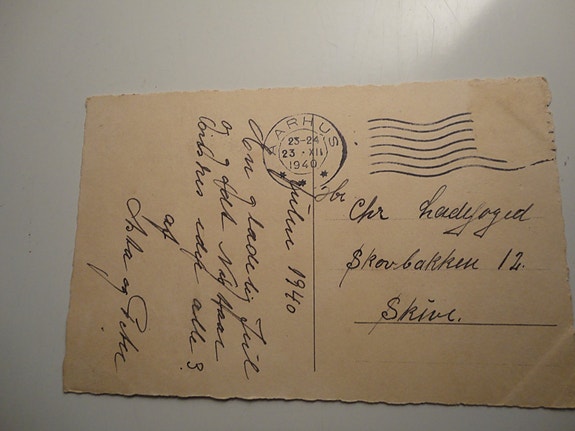 AARHUS
23-24
23 • XII
1940
Julen 1940
En glædelig Jul
og godt Nytaar
ønskes eder alle 3.
af
Asta og Peter
Hr
Chr Ladefoged
Skovbakken 12.
Skive.